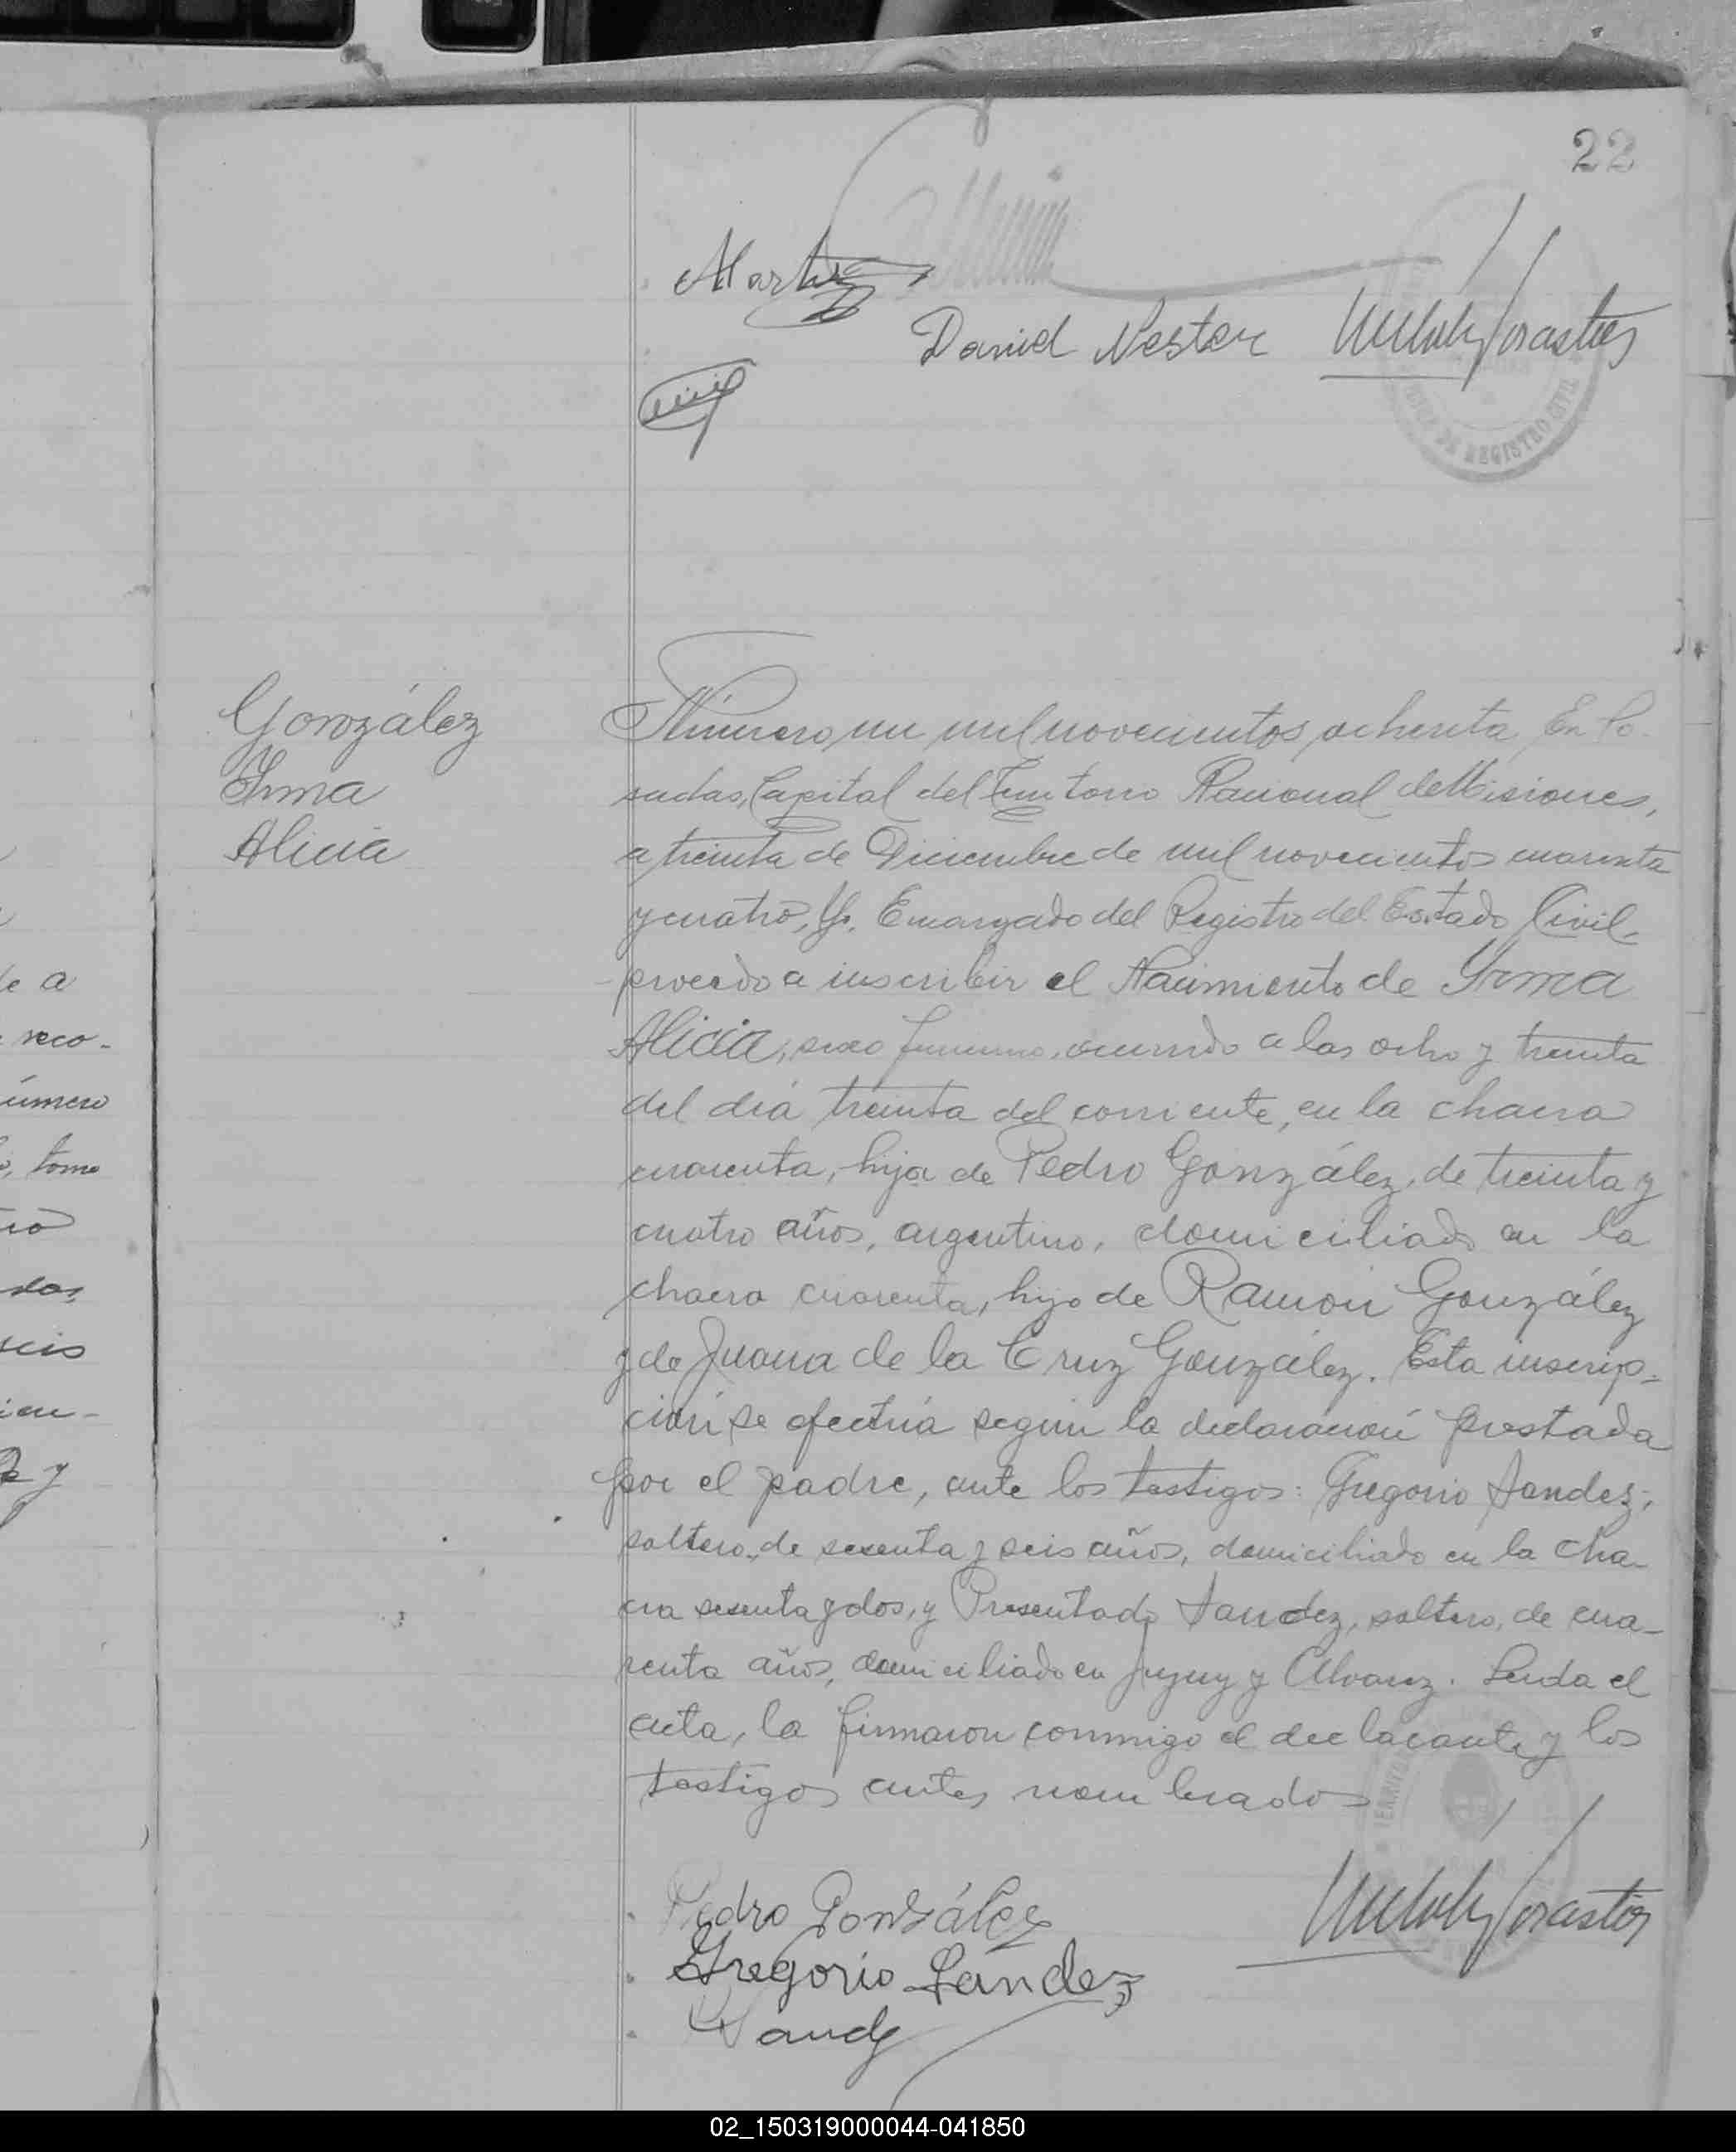 22
David Nester
DE REGISTRO CIVIL
González
Irma
Alicia
Número un mil novecientos ochenta En Po-
sadas, Capital del Territorio Nacional de Misiones,
a treinta de Diciembre de mil novecientos cuarenta
y cuatro, Yo, Encargado del Registro del Estado Civil,
procedo a inscribir el Nacimiento de Irma
Alicia, sexo femenino, ocurrido a las ocho y treinta
del día treinta del corriente, en la chacra
cuarenta, hija de Pedro González, de treinta y
cuatro años, argentino, domiciliado en la
chacra cuarenta, hijo de Ramón González
y de Juana de la Cruz González. Esta inscrip-
ción se efectúa según la declaración prestada
por el padre, ante los testigos: Gregorio Sandez,
soltero, de sesenta y seis años, domiciliado en la cha-
cra sesenta y dos, y Presentado Sandez, soltero, de cua-
renta años, domiciliado en Jujuy y Alvarez. Leída el
acta, la firmaron conmigo el declarante y los
testigos antes nombrados
Pedro González
Gregorio Sandez
02_150319000044-041850